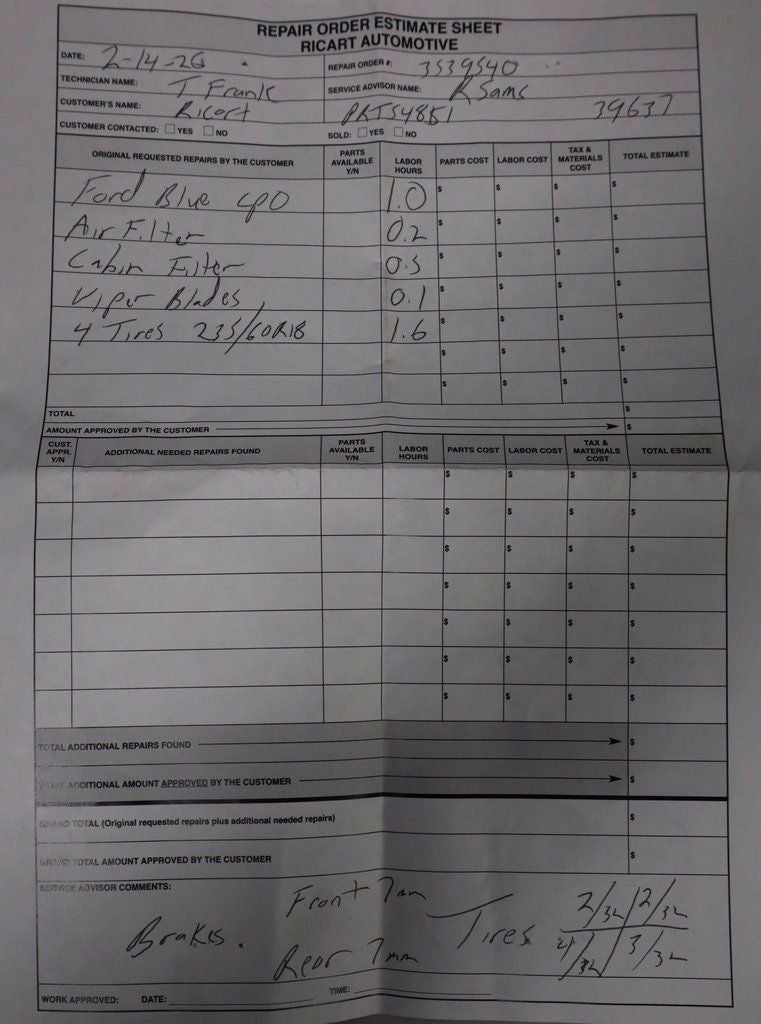 REPAIR ORDER ESTIMATE SHEET
RICART AUTOMOTIVE
DATE: 2-14-26
REPAIR ORDER #: 3539540
TECHNICIAN NAME: T Frank
SERVICE ADVISOR NAME: R Sams
CUSTOMER'S NAME: Ricart
PRTS4851 39637
CUSTOMER CONTACTED: ☐ YES ☐ NO
SOLD: ☐ YES ☐ NO
ORIGINAL REQUESTED REPAIRS BY THE CUSTOMER PARTS AVAILABLE Y/N LABOR HOURS PARTS COST LABOR COST TAX & MATERIALS COST TOTAL ESTIMATE
Ford Blue CPO 1.0 $ $ $ $
Air Filter 0.2 $ $ $ $
Cabin Filter 0.3 $ $ $ $
Wiper Blades 0.1 $ $ $ $
4 Tires 235/60R18 1.6 $ $ $ $
$ $ $ $
$ $ $ $
TOTAL $
AMOUNT APPROVED BY THE CUSTOMER $
CUST. APPR. Y/N ADDITIONAL NEEDED REPAIRS FOUND PARTS AVAILABLE Y/N LABOR HOURS PARTS COST LABOR COST TAX & MATERIALS COST TOTAL ESTIMATE
$ $ $ $
$ $ $ $
$ $ $ $
$ $ $ $
$ $ $ $
$ $ $ $
$ $ $ $
TOTAL ADDITIONAL REPAIRS FOUND $
TOTAL ADDITIONAL AMOUNT APPROVED BY THE CUSTOMER $
GRAND TOTAL (Original requested repairs plus additional needed repairs) $
GRAND TOTAL AMOUNT APPROVED BY THE CUSTOMER $
SERVICE ADVISOR COMMENTS:
Front 7mm
Brakes.
Rear 7mm
Tires
2/32 2/32
4/32 3/32
WORK APPROVED: DATE: TIME: